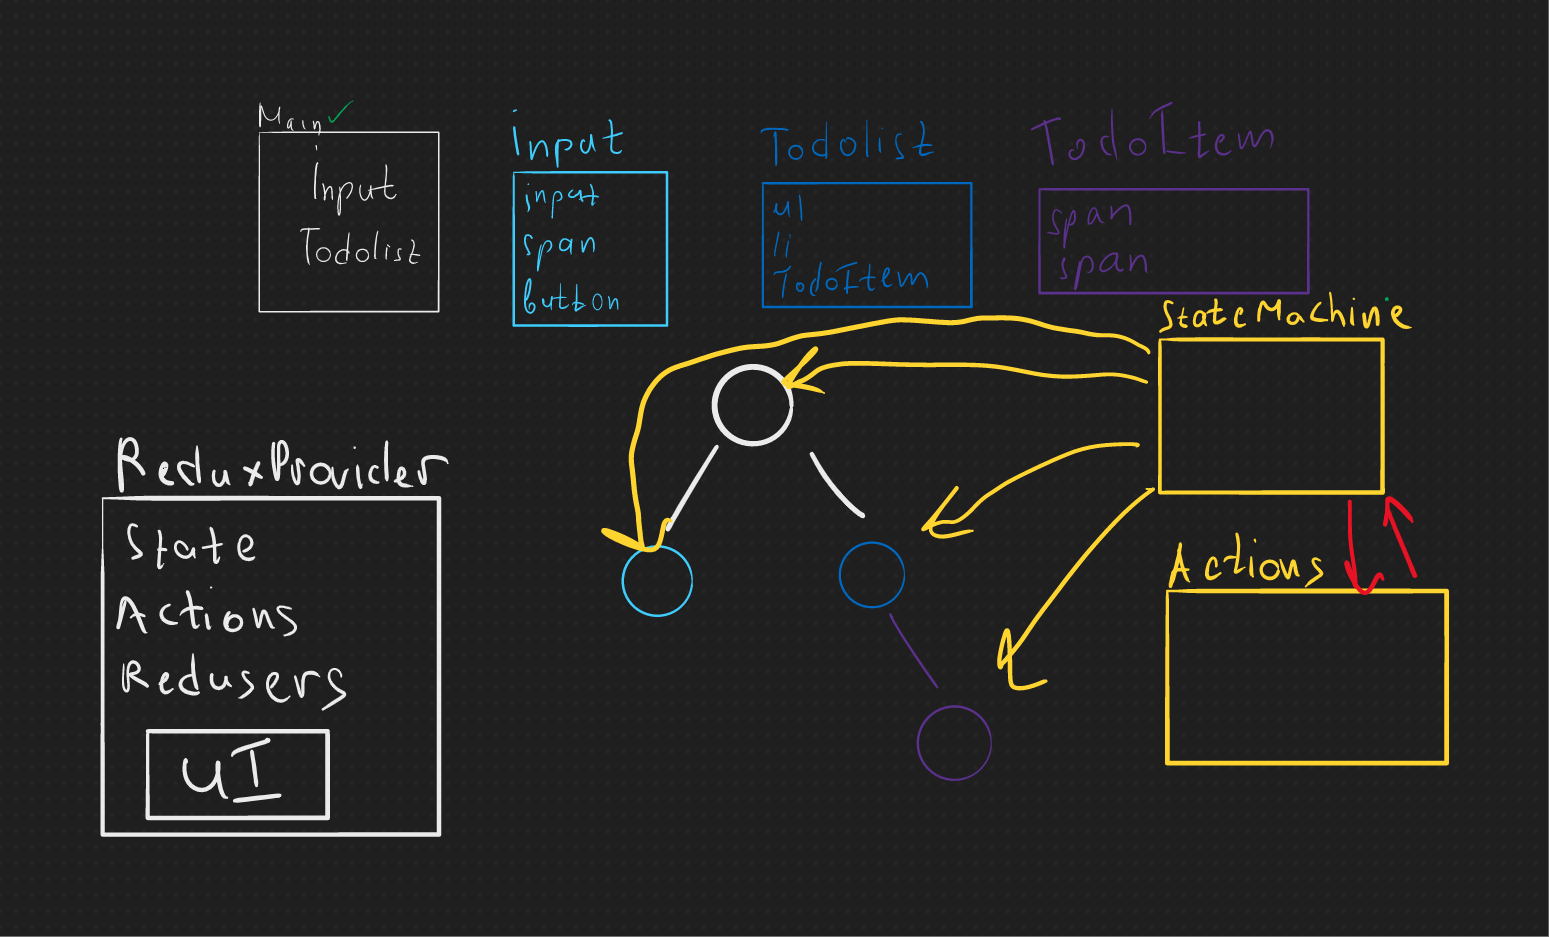 Main
Input
Todolist
input
input
span
button
Todolist
ul
li
TodoItem
TodoItem
span
span
StateMachine
ReduxProvider
State
Actions
Redusers
UI
Actions